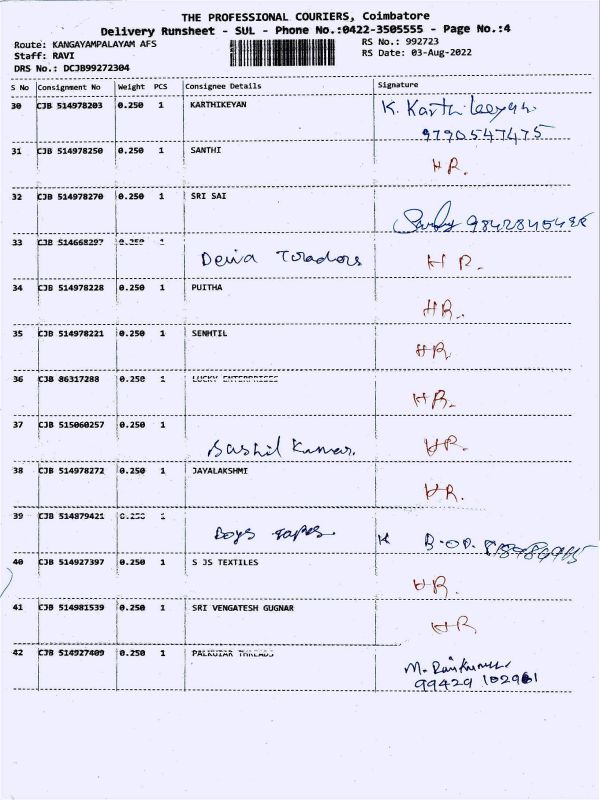 THE PROFESSIONAL COURIERS, Coimbatore
Delivery Runsheet - SUL - Phone No.:0422-3505555 - Page No.:4
Route: KANGAYAMPALAYAM AFS RS No.: 992723
Staff: RAVI RS Date: 03-Aug-2022
DRS No.: DCJB99272304
S No Consignment No Weight PCS Consignee Details Signature
30 CJB 514978203 0.250 1 KARTHIKEYAN K. Karthikeyan
9790547475
31 CJB 514978250 0.250 1 SANTHI HR.
32 CJB 514978270 0.250 1 SRI SAI
33 CJB 514668297 0.250 1 Deiva Toradors HR.
34 CJB 514978228 0.250 1 PUITHA HR.
35 CJB 514978221 0.250 1 SENHTIL HR
36 CJB 86317288 0.250 1 LUCKY ENTERPRISES HR.
37 CJB 515060257 0.250 1 Sashil Kumar. HR.
38 CJB 514978272 0.250 1 JAYALAKSHMI HR.
39 CJB 514879421 0.250 1 Boys Tapes
40 CJB 514927397 0.250 1 S JS TEXTILES HR.
41 CJB 514981539 0.250 1 SRI VENGATESH GUGNAR HR
42 CJB 514927409 0.250 1 THREADS